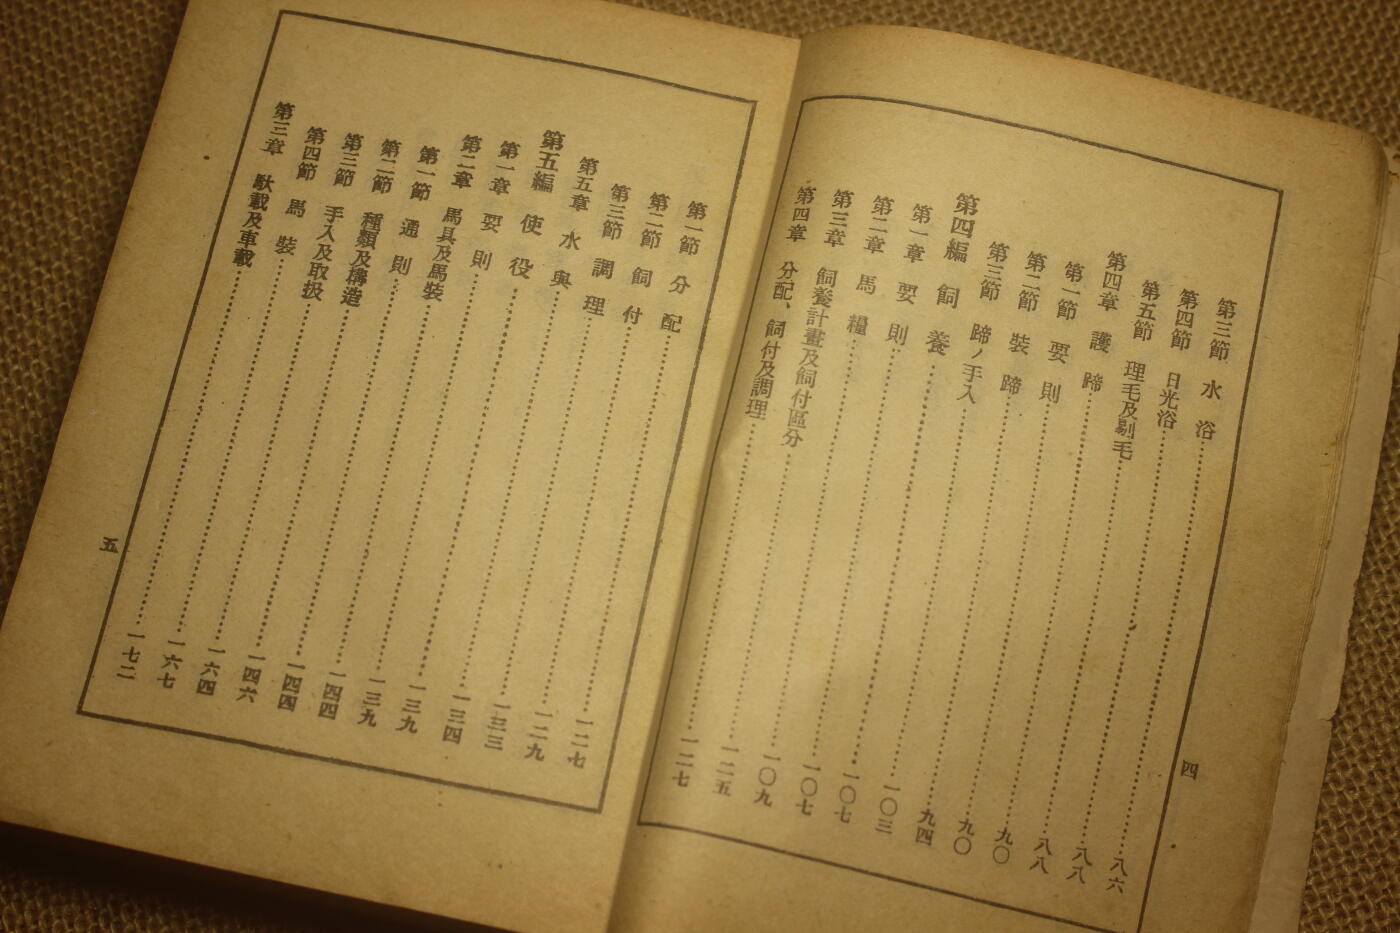 第三節 水浴……八六
第四節 日光浴……八八
第五節 理毛及剔毛……八八
第四章 護蹄……九〇
第一節 要則……九〇
第二節 裝蹄……九四
第三節 蹄ノ手入……一〇三
第四編 飼養……一〇七
第一章 要則……一〇七
第二章 馬糧……一〇九
第三章 飼養計畫及飼付區分……一二五
第四章 分配、飼付及調理……一二七
四
第一節 分配……一二七
第二節 飼付……一二九
第三節 調理……一三三
第五章 水與……一三四
第五編 使役……一三九
第一章 要則……一三九
第二章 馬具及馬裝……一四四
第一節 通則……一四四
第二節 種類及構造……一四六
第三節 手入及取扱……一六四
第四節 馬裝……一六七
第三章 馱載及車載……一七二
五